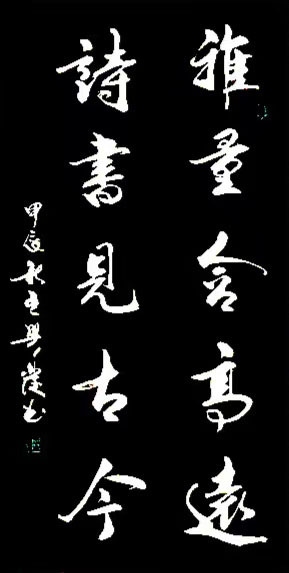 雅量含高遠
詩書見古今
甲辰秋